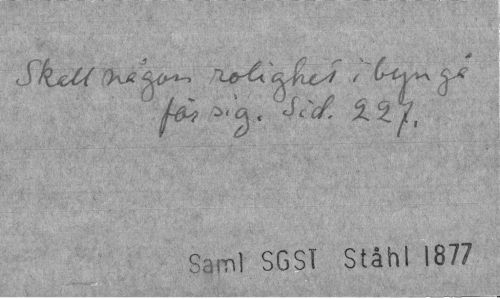 Skall någon rolighet i byn gå
för sig. Sid. 227.
Saml SGST Ståhl 1877